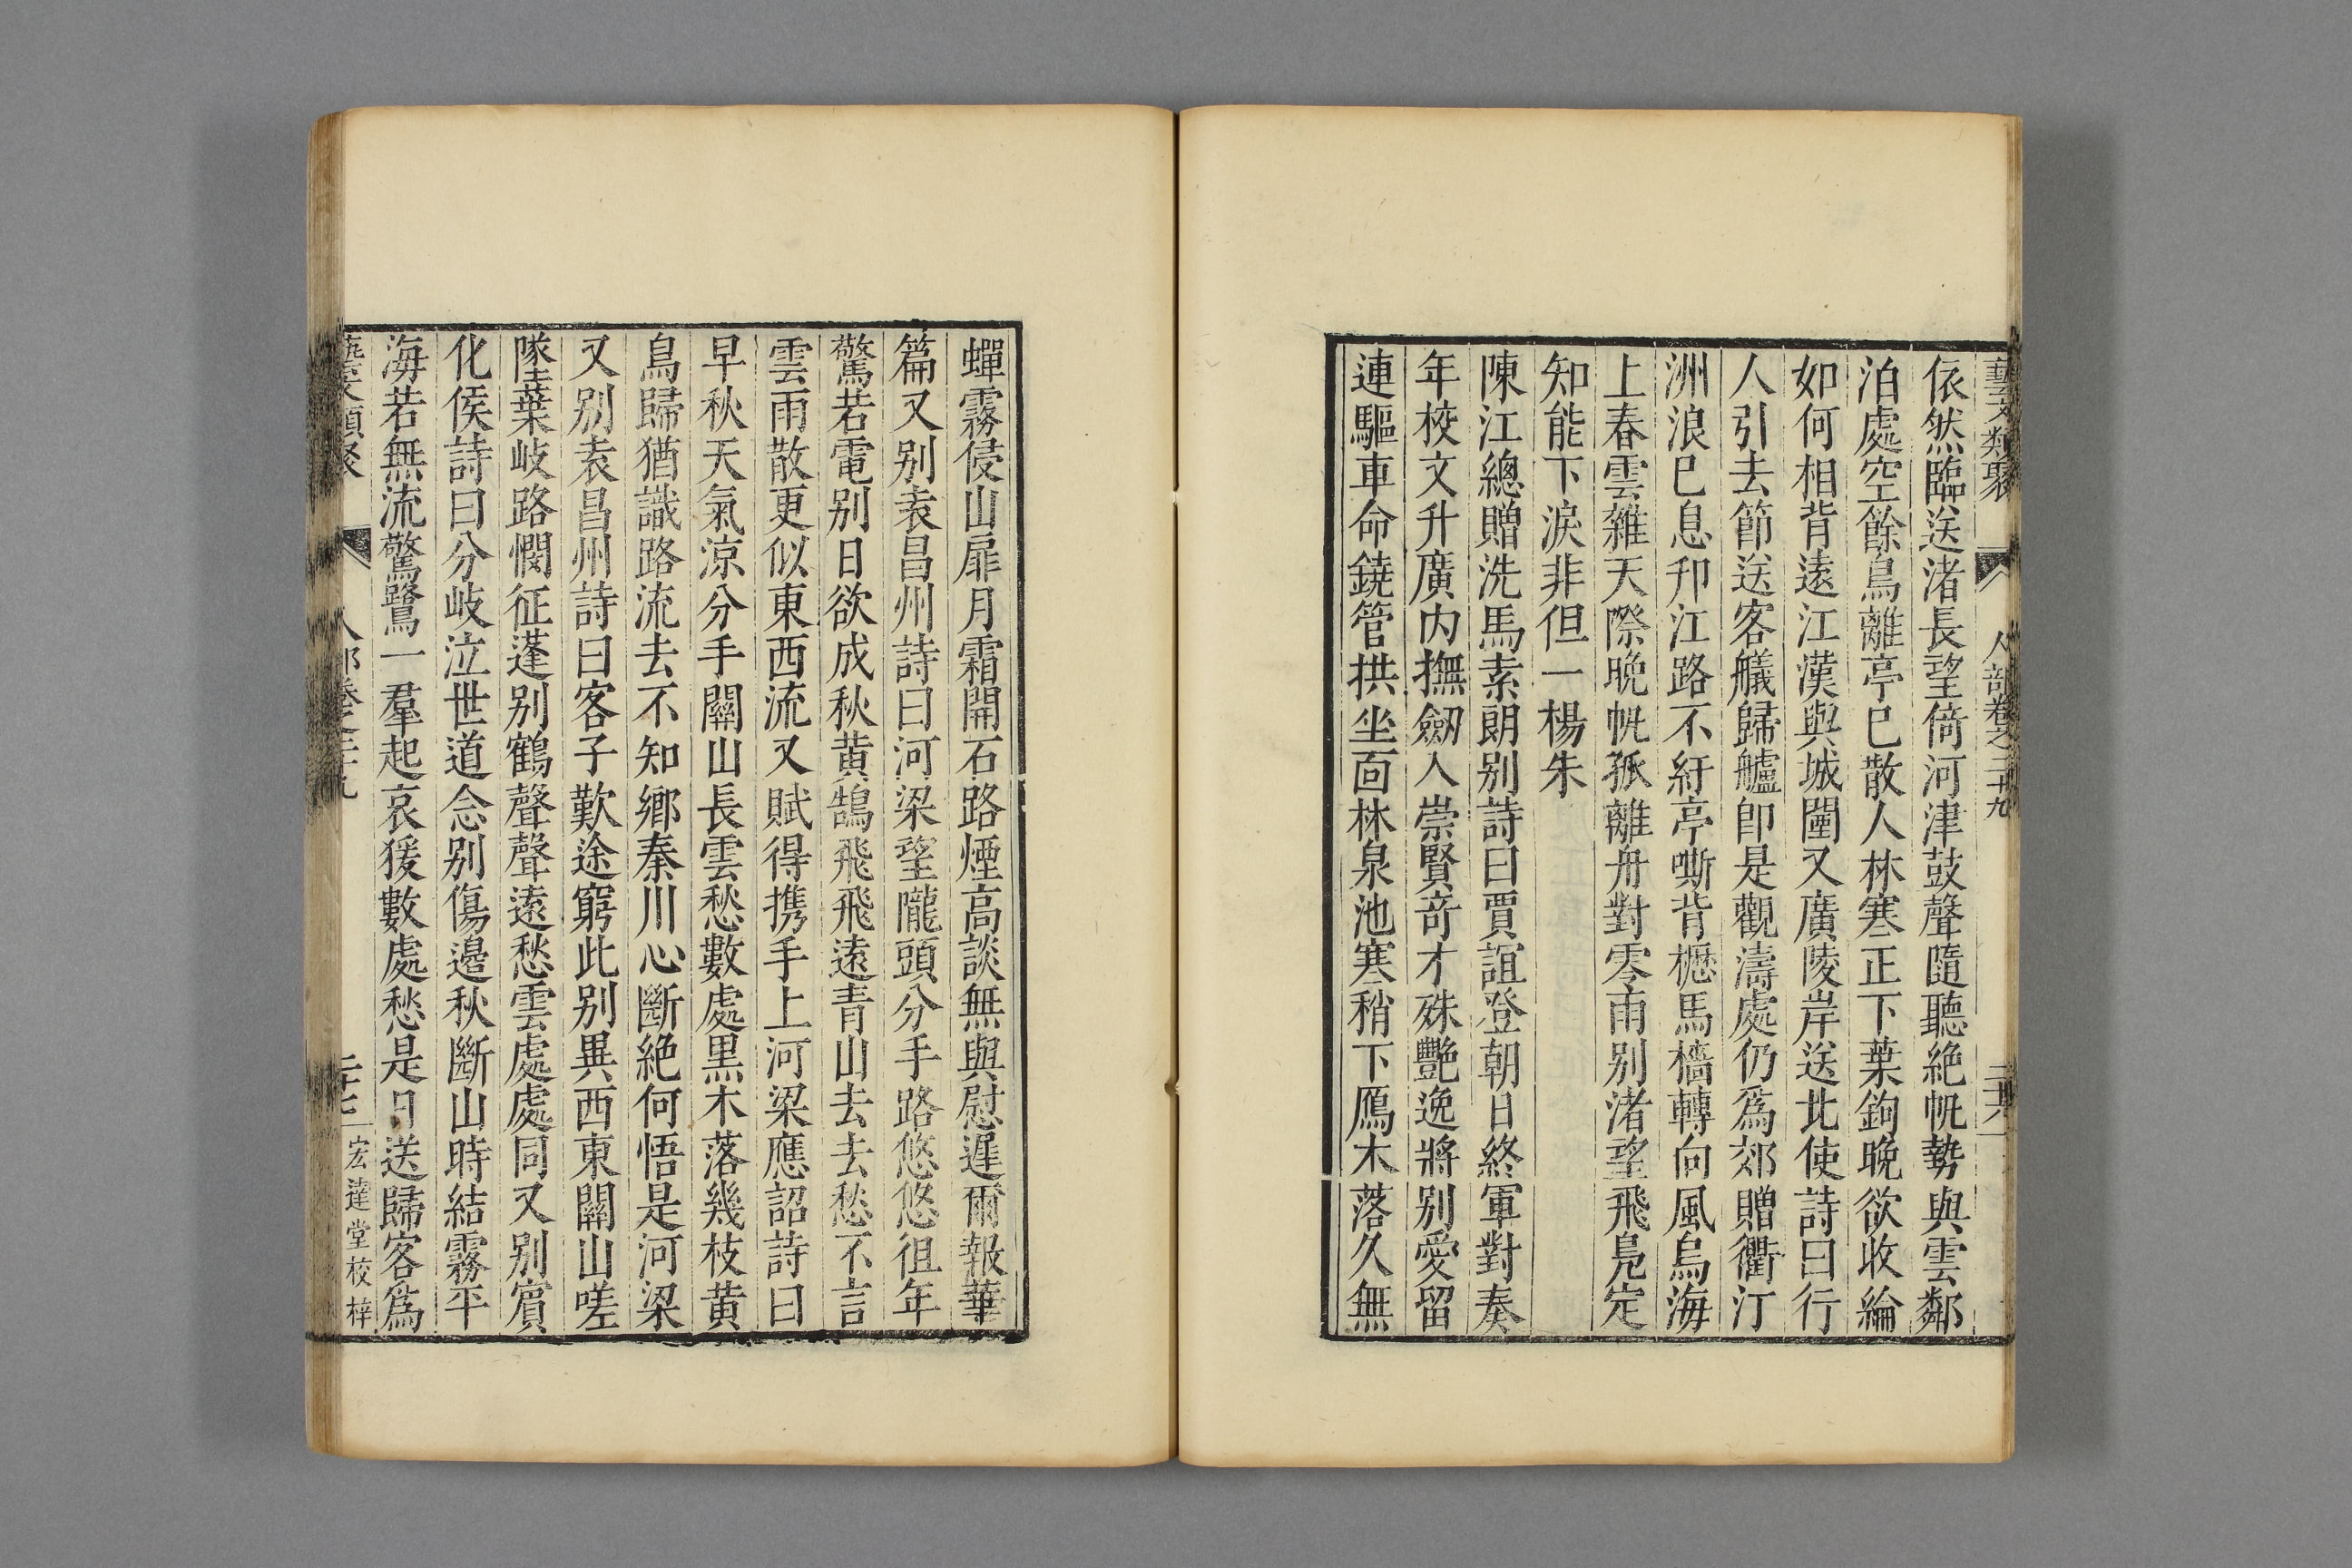 藝文類聚 人部卷之二十九 二十六
依然臨送渚長望倚河津鼓聲隨聽絶帆勢與雲鄰
泊處空餘鳥離亭已散人林寒正下葉鉤晚欲收綸
如何相背遠江漢與城闉又廣陵岸送北使詩曰行
人引去節送客艤歸艫卽是觀濤處仍爲郊贈衢汀
洲浪已息邗江路不紆亭嘶背櫪馬檣轉向風烏海
上春雲雜天際晚帆孤離舟對零雨别渚望飛鳧定
知能下淚非但一楊朱
陳江總贈洗馬素朗别詩曰賈誼登朝日終軍對奏
年校文升廣内撫劒入崇賢竒才殊艷逸將别愛留
連驅車命鐃管拱坐面林泉池寒稍下鴈木落久無
蟬霧侵山扉月霜開石路煙高談無與慰遲爾報華
篇又别袁昌州詩曰河梁望隴頭分手路悠悠徂年
驚若電别日欲成秋黄鵠飛飛遠青山去去愁不言
雲雨散更似東西流又賦得携手上河梁應詔詩曰
早秋天氣涼分手關山長雲愁數處黒木落幾枝黄
鳥歸猶識路流去不知鄉秦川心斷絶何悟是河梁
又别袁昌州詩曰客子歎途窮此别異西東關山嗟
墜葉岐路憫征蓬别鶴聲聲遠愁雲處處同又别賓
化侯詩曰分岐泣世道念别傷邊秋斷山時結霧平
海若無流驚鷺一羣起哀猨數處愁是日送歸客爲
藝文類聚 人部卷之二十九 二十七 宏達堂校梓